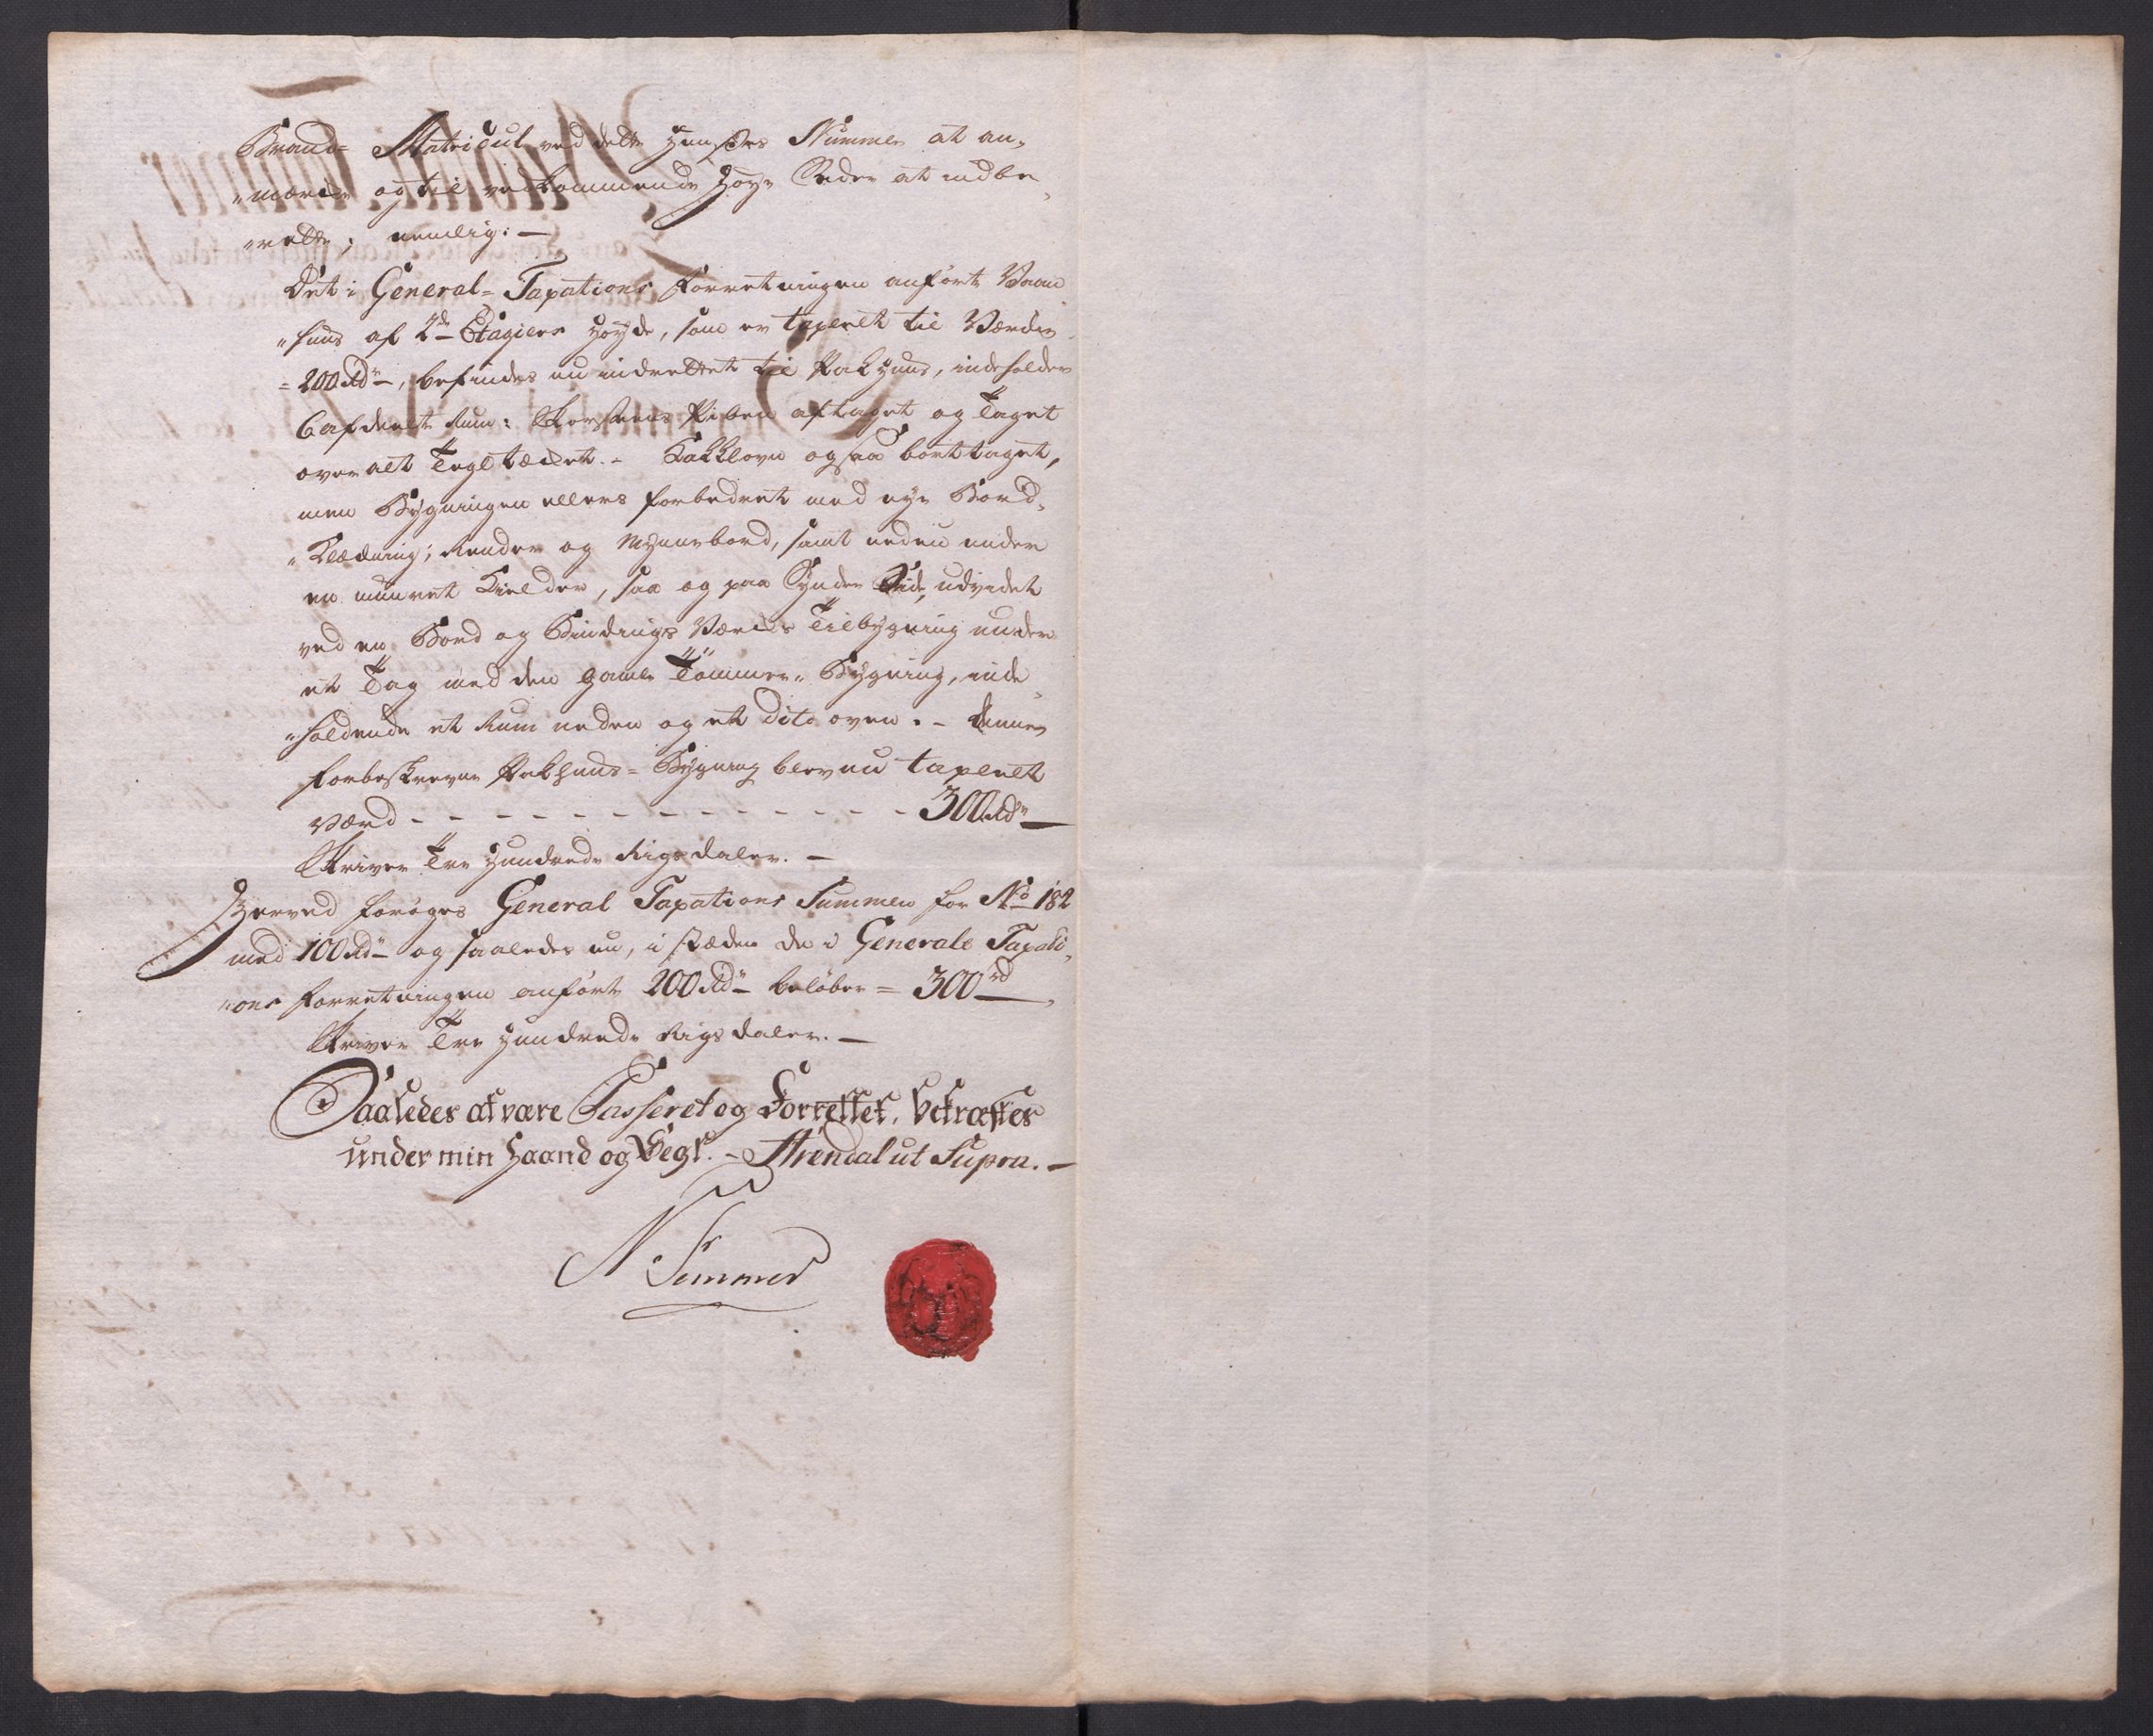 Brand= Matricul ved dette Huuses Nummer at an„
„mærke og til vedkommende Høye Steder at indbe„
„rette; nemlig: —
Det i General= Taxations Forretningen anførte Vaan„
„huus af 2de Etagiers Høyde, som er taxeret til Værdie
= 200 Rdr —, befindes nu indrettet til Pakhuus, indeholder
6 afdeelte Rum: Skorsteens Piben aftaget og Taget
over alt Tegltækket. – Kakklovn ogsaa borttaget,
men Bygningen ellers forbedret med nye Bord„
„Klædning; Render og Mynnebord, samt neden under
en muuret Kielder, saa og paa Syndre Side, udvidet
ved en Bord og Bindings Værks Tilbygning under
et Tag med den gamle Tømmer„ Bygning, inde„
„holdende et Rum neden og et dito oven. – Denne
forbeskrevne Pakhuus= Bygning blev nu taxeret
værd - - - - - - - - - - - - 300 Rdr —
Skriver Tre Hundrede Rigsdaler. —
Herved forøges General Taxations Summen for No 182
med 100 Rdr – og saaledes nu, i stæden de i Generale Taxati„
„ons Forretningen anførte 200 Rdr – beløber = 300 rd —,
Skriver Tre Hundrede Rigsdaler. —
Saaledes at være Passeret og Forrettet, bekræftes
under min Haand og Segl. – Arendal ut Supra. —
N Sommer